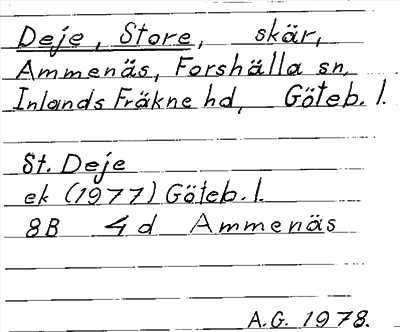 Deje, Store, skär,
Ammenäs, Forshälla sn,
Inlands Fräkne hd, Göteb. l.
St. Deje
ek (1977) Göteb. l.
8B 4d Ammenäs
A.G. 1978.